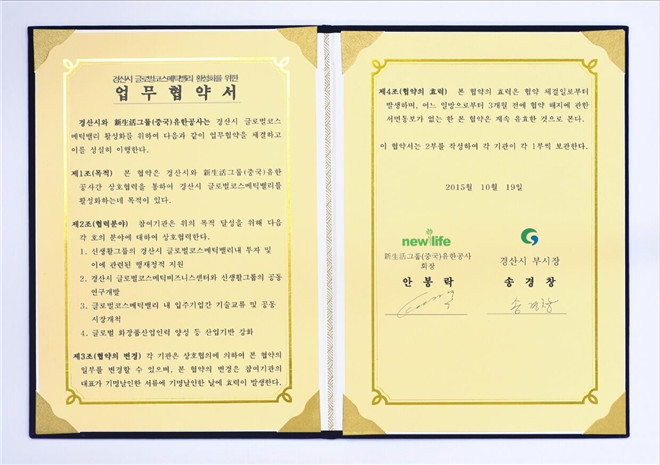 경산시 글로벌코스메틱밸리 활성화를 위한
업무협약서
경산시와 新生活그룹(중국)유한공사는 경산시 글로벌코스
메틱밸리 활성화를 위하여 다음과 같이 업무협약을 체결하고
이를 성실히 이행한다.
제1조(목적) 본 협약은 경산시와 新生活그룹(중국)유한
공사간 상호협력을 통하여 경산시 글로벌코스메틱밸리를
활성화하는데 목적이 있다.
제2조(협력분야) 참여기관은 위의 목적 달성을 위해 다음
각 호의 분야에 대하여 상호협력한다.
1. 신생활그룹의 경산시 글로벌코스메틱밸리내 투자 및
이에 관련된 행재정적 지원
2. 경산시 글로벌코스메틱비즈니스센터와 신생활그룹의 공동
연구개발
3. 글로벌코스메틱밸리 내 입주기업간 기술교류 및 공동
시장개척
4. 글로벌 화장품산업인력 양성 등 산업기반 강화
제3조(협약의 변경) 각 기관은 상호협의에 의하여 본 협약의
일부를 변경할 수 있으며, 본 협약의 변경은 참여기관의
대표가 기명날인한 서류에 기명날인한 날에 효력이 발생한다.
제4조(협약의 효력) 본 협약의 효력은 협약 체결일로부터
발생하며, 어느 일방으로부터 3개월 전에 협약 해지에 관한
서면통보가 없는 한 본 협약은 계속 유효한 것으로 본다.
이 협약서는 2부를 작성하여 각 기관이 각 1부씩 보관한다.
2015년 10월 19일
newlife
新生活그룹(중국)유한공사
회장
안봉락
경산시 부시장
송경창
송경창